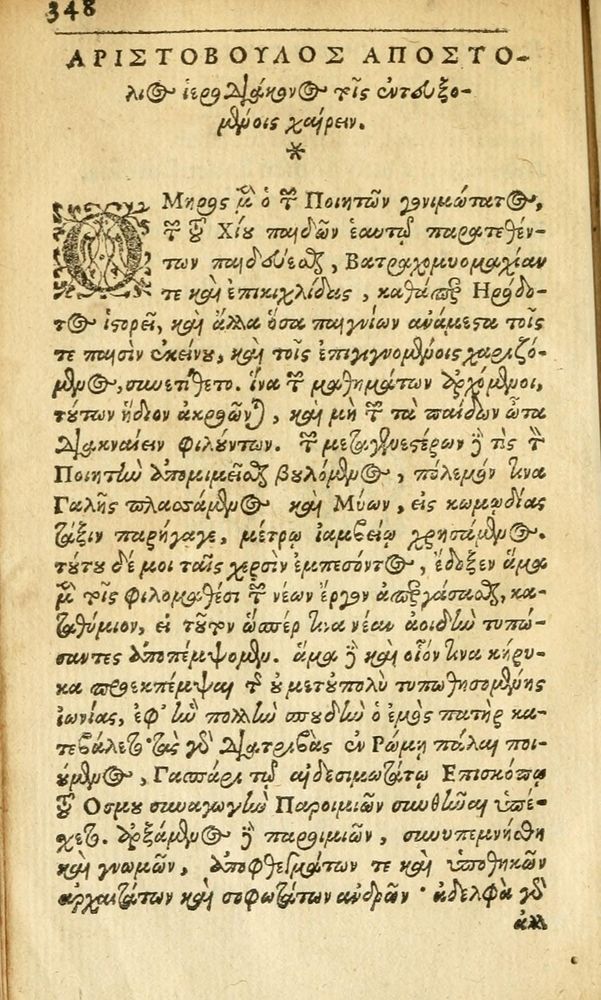 348
ΑΡΙΣΤΟΒΟΥΛΟΣ ΑΠΟΣΤΟ-
λιος ἱεροδιάκονος τοῖς ἐντευξο-
μένοις χαίρειν.
*
ΟΜηρος μὲν ὁ τῶν Ποιητῶν γονιμώτατος,
τῶν τοῦ Χίου παίδων ἑαυτῷ παρατεθέν-
των παιδεύεσθαι, Βατραχομυομαχίαν
τε καὶ ἐπικιχλίδας, καθάπερ Ηρόδο-
τος ἱστορεῖ, καὶ ἄλλα ὅσα παιγνίων ἀνάμεστα τοῖς
τε παισὶν ἐκείνου, καὶ τοῖς ἐπιγιγνομένοις χαριζό-
μενος, συνετίθετο. ἵνα τῶν μαθημάτων ἀρχόμενοι,
τούτων ἥδιον ἀκροῶνται, καὶ μὴ τῶν τὰ παίδων ὦτα
διακναίειν φιλούντων. τῶν μεταγενεστέρων δέ τις τὸν
Ποιητὴν ἀπομιμεῖσθαι βουλόμενος, πόλεμόν τινα
Γαλῆς πλασάμενος καὶ Μύων, εἰς κωμῳδίας
τάξιν παρήγαγε, μέτρῳ ἰαμβείῳ χρησάμενος.
τούτου δέ μοι ταῖς χερσὶν ἐμπεσόντος, ἔδοξεν ἅμα
μὲν τοῖς φιλομαθέσι τῶν νέων ἔργον ἀπεργάσασθαι, κα-
ταθύμιον, εἰ τοῦτον ὥσπέρ τινα νέαν ἀοιδὴν τυπώ-
σαντες ἀποπέμψομεν. ἅμα δὲ καὶ οἷόν τινα κήρυ-
κα προεκπέμψαι τῆς οὐ μετουπολὺ τυπωθησομένης
ἰωνίας, ἐφ᾽ ἣν πολλὴν σπουδὴν ὁ ἐμὸς πατὴρ κα-
τεβάλετο· τὰς γὰρ διατριβὰς ἐν Ρώμῃ πάλαι ποι-
ούμενος, Γασπάρι τῷ αἰδεσιμωτάτῳ Επισκόπῳ
τοῦ Οσμου συναγωγὴν Παροιμιῶν συνθεῖναι ὑπέ-
σχετο. ἀρξάμενος δὲ παροιμιῶν, συνυπεμνήσθη
καὶ γνωμῶν, ἀποφθεγμάτων τε καὶ ὑποθηκῶν
ἀρχαιοτάτων καὶ σοφωτάτων ἀνδρῶν· ἀδελφὰ γὰρ
ἀλλ